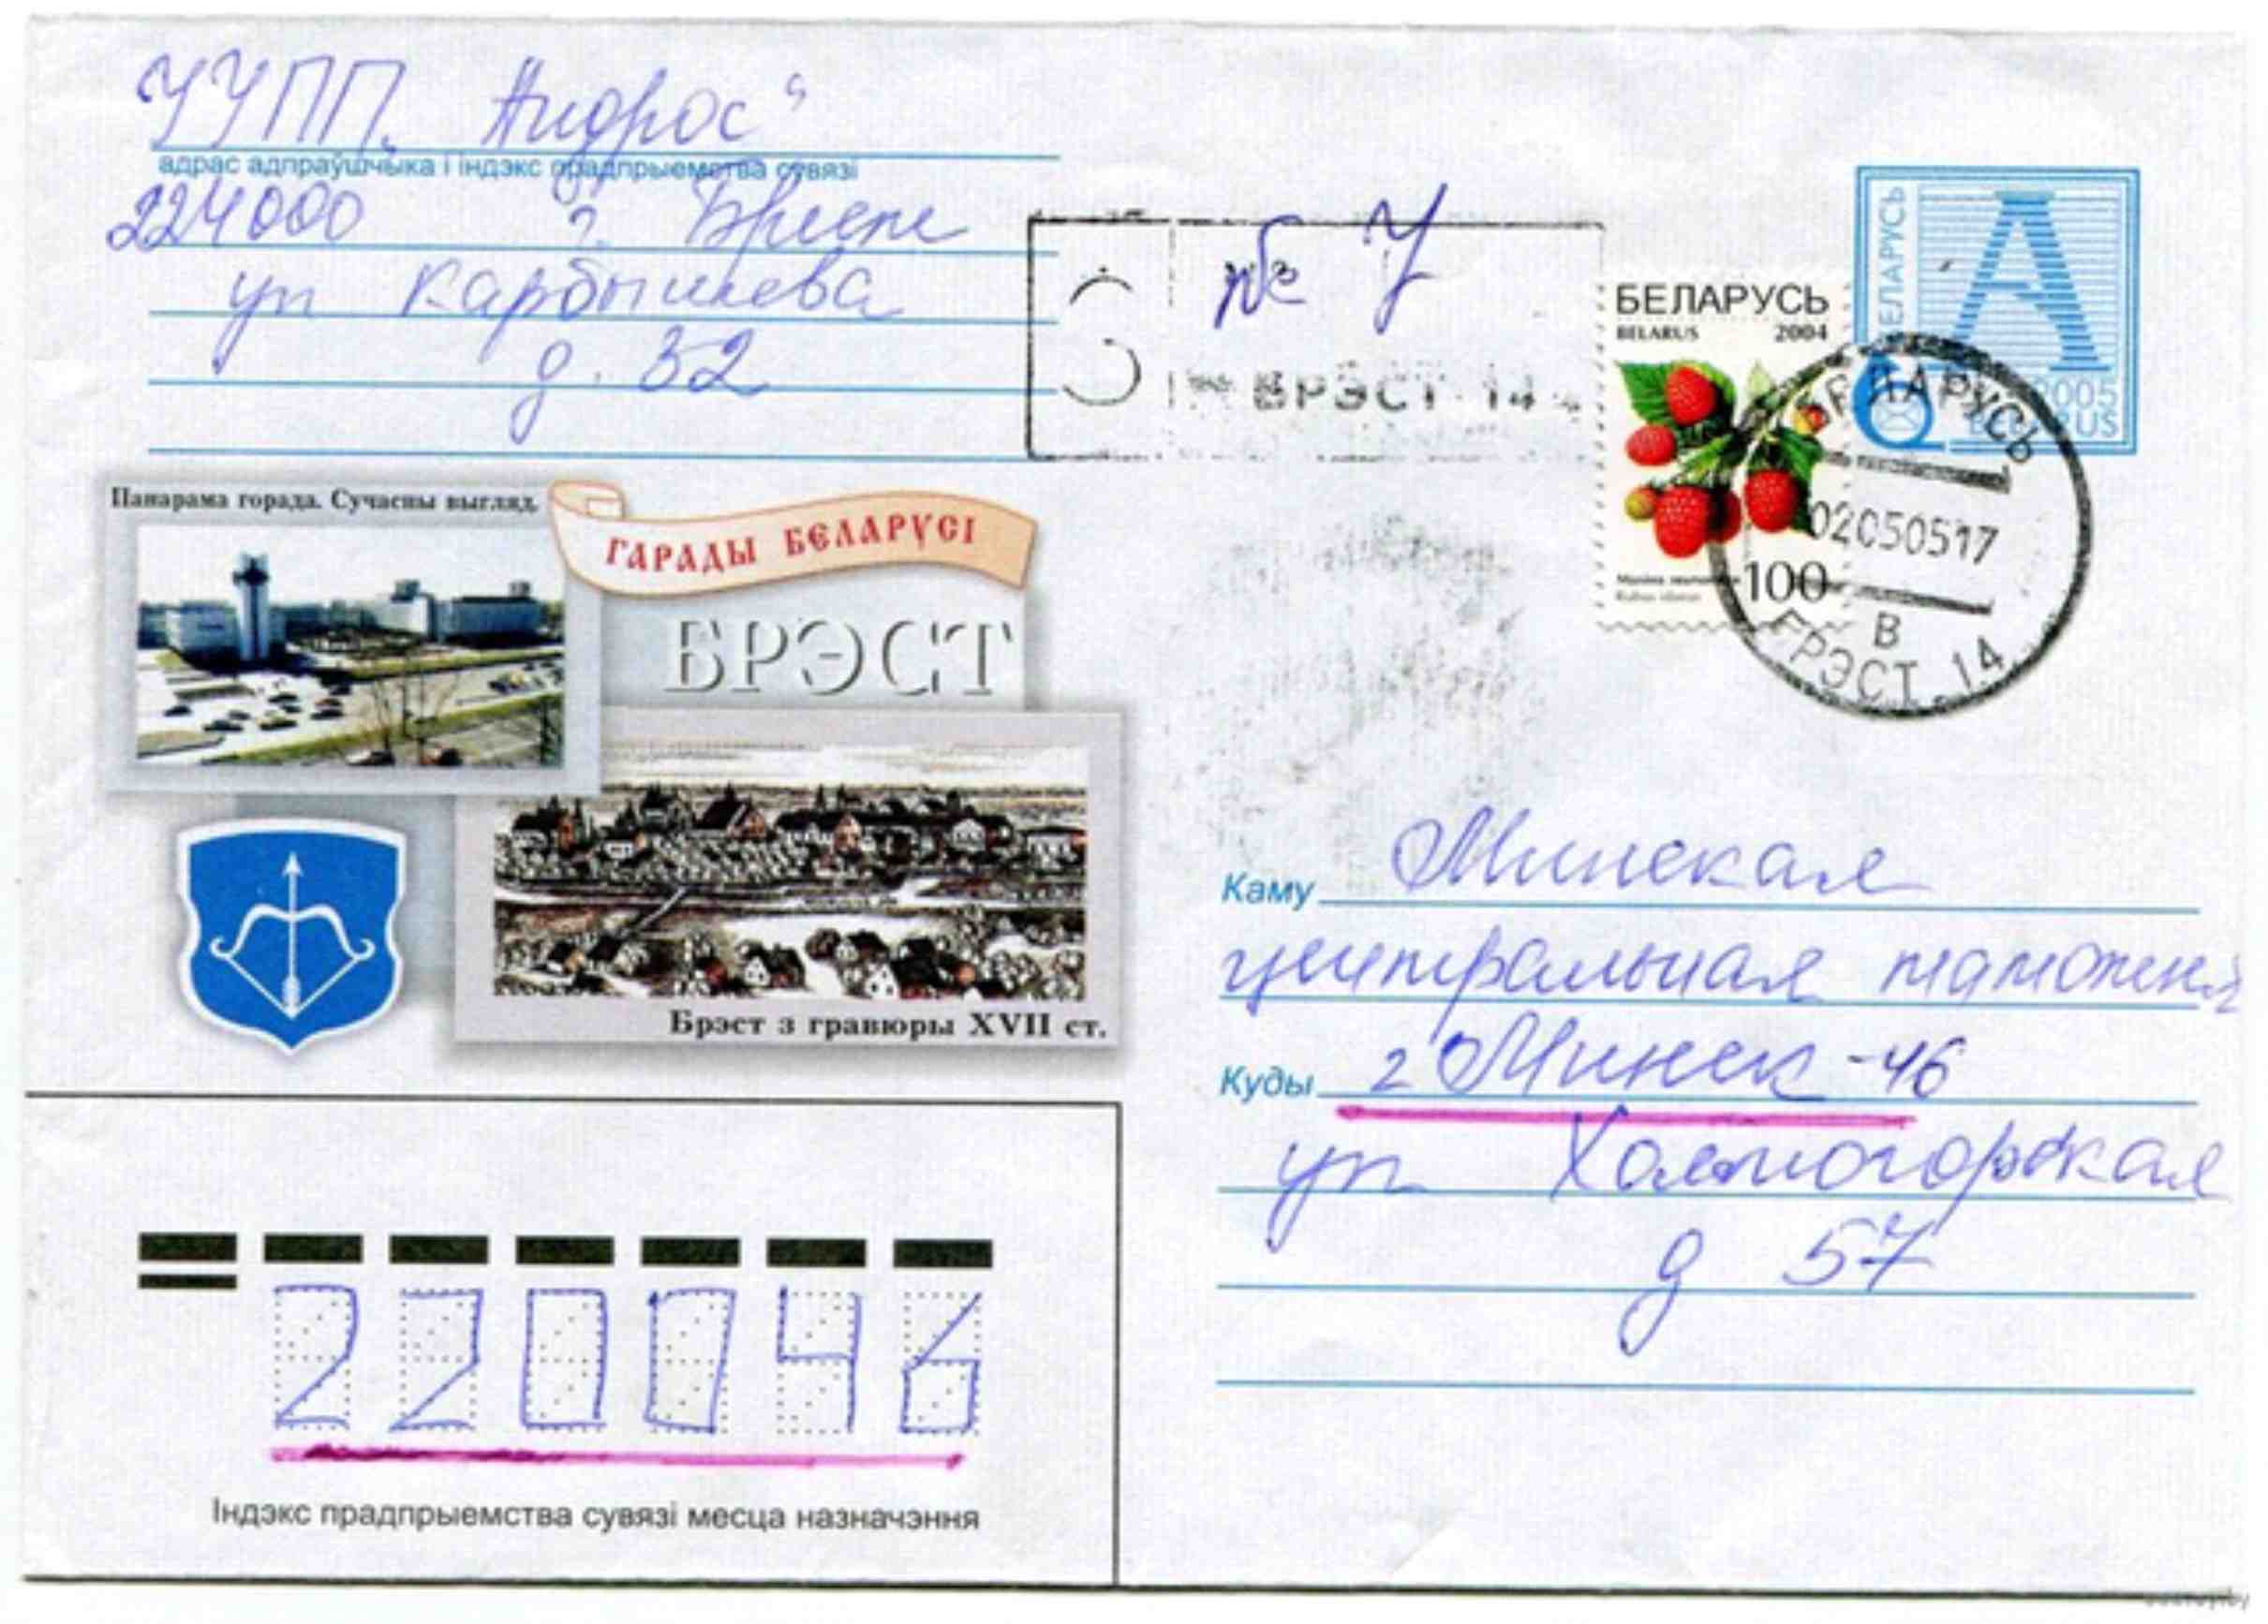 ЧУПП „Андрос“
адрас адпраўшчыка і індэкс прадпрыемства сувязі
224000 г. Брест
ул Карбышева
д. 32
№ 4
БРЭСТ 14
БЕЛАРУСЬ
BELARUS 2004
100
БЕЛАРУСЬ
А
2005
BELARUS
БЕЛАРУСЬ
02050517
В
БРЭСТ 14
Панарама горада. Сучасны выгляд.
ГАРАДЫ БЕЛАРУСІ
БРЭСТ
Брэст з гравюры XVII ст.
Каму Минская
центральная таможня
Куды г Минск-46
ул Холмогорская
д 57
220046
Індэкс прадпрыемства сувязі месца назначэння